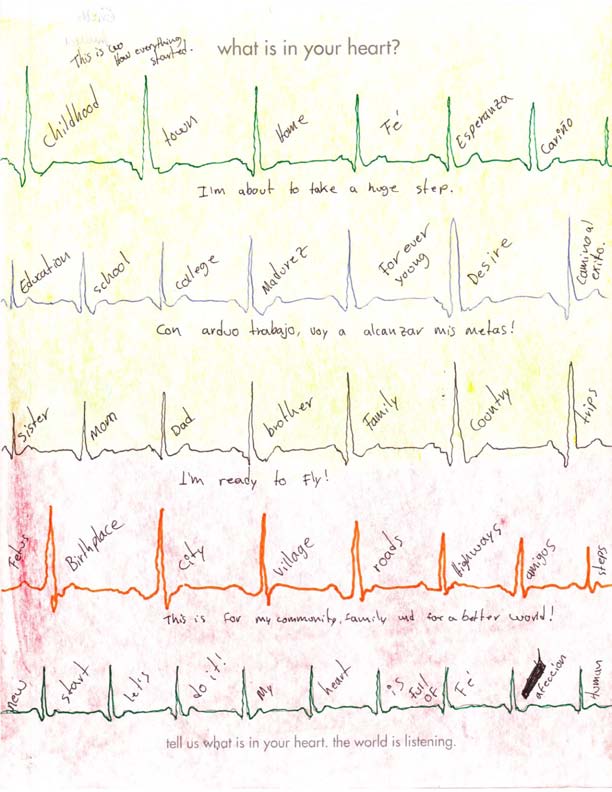 This is how everything started.
what is in your heart?
childhood town Home Fé Esperanza Cariño
I'm about to take a huge step.
Education school college Madurez For ever young Desire Camino al exito.
Con arduo trabajo, voy a alcanzar mis metas!
sister mom Dad brother Family Country trips
I'm ready to Fly!
Fetus Birthplace City Village roads Highways amigos steps
This is for my community, family and for a better world!
new start let's do it! My heart is full OF Fé afeccion Human
tell us what is in your heart. the world is listening.